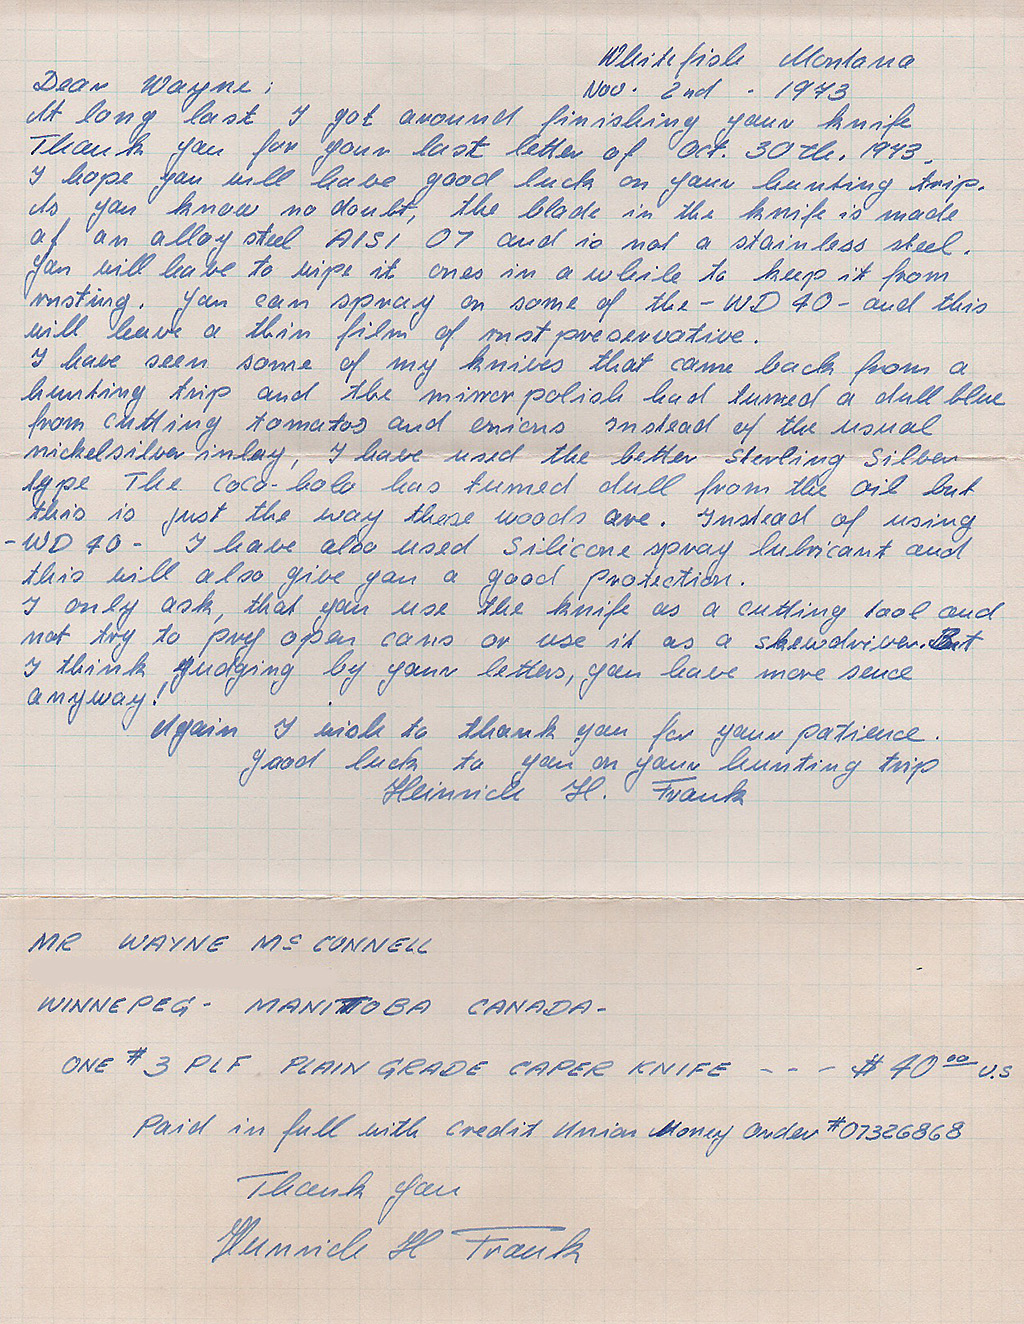 Whitefish Montana
Dear Wayne; Nov. 2nd - 1973
At long last I got around finishing your knife
Thank you for your last letter of Oct. 30th. 1973.
I hope you will have good luck on your hunting trip.
As you know no doubt, the blade in the knife is made
of an alloy steel AISI 07 and is not a stainless steel.
You will have to wipe it ones in a while to keep it from
rusting. You can spray on some of the - WD 40 - and this
will leave a thin film of rustpreservative.
I have seen some of my knives that came back from a
hunting trip and the mirrorpolish had turned a dull blue
from cutting tomatos and onions Instead of the usual
nickelsilver inlay, I have used the better Sterling Silver
type The Coco-bolo has turned dull from the oil but
this is just the way these woods are. Instead of using
- WD 40 - I have also used Silicone spray lubricant and
this will also give you a good protection.
I only ask, that you use the knife as a cutting tool and
not try to pry open cans or use it as a skewdriver. But
I think judging by your letters, you have more sence
anyway!
Again I wish to thank you for your patience.
Good luck to you on your hunting trip
Heinrich H. Frank
MR WAYNE McCONNELL
WINNEPEG - MANITOBA CANADA -
ONE #3 PLF PLAIN GRADE CAPER KNIFE - - - $40.00 U.S
Paid in full with Credit Union Money Order #07326868
Thank You
Heinrich H Frank